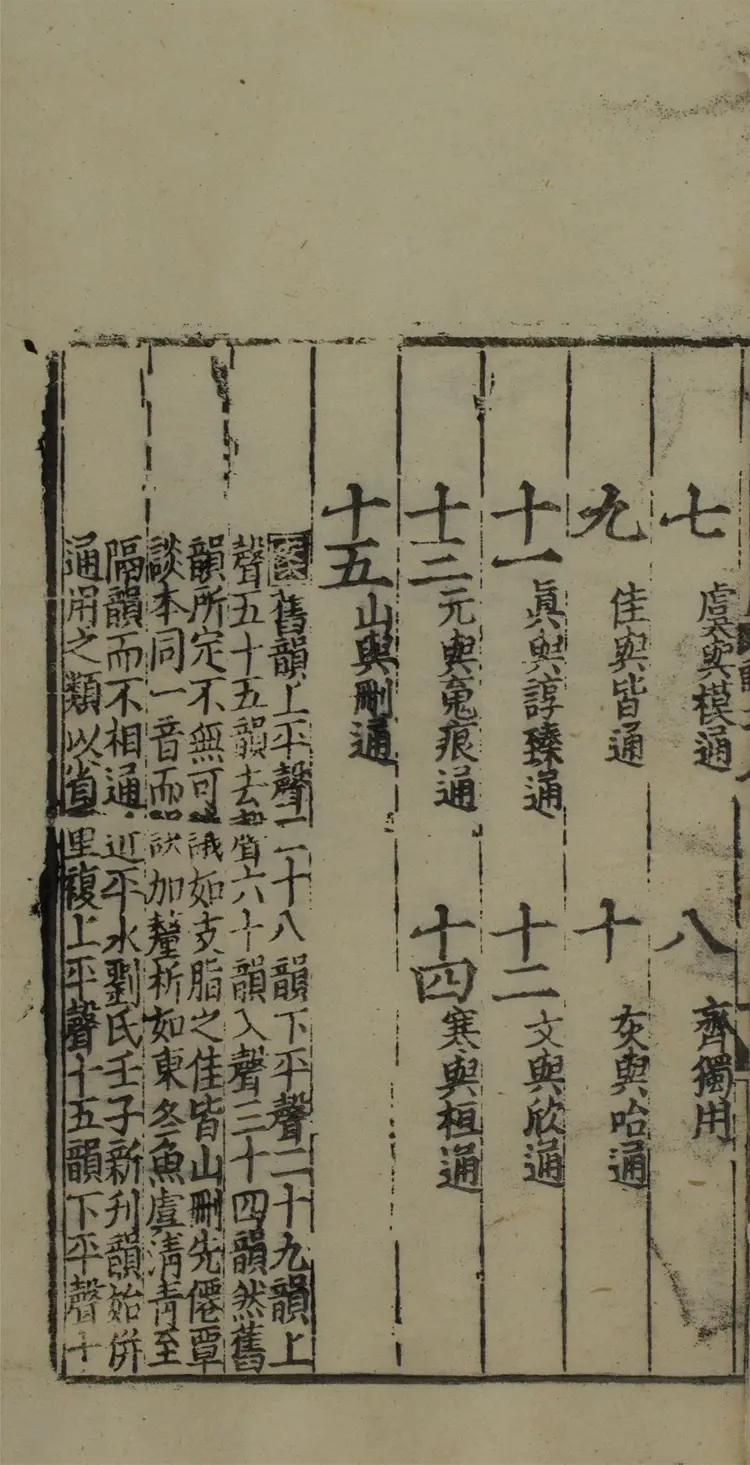 七 虞與模通 八 齊獨用
九 佳與皆通 十 灰與咍通
十一 眞與諄臻通 十二 文與欣通
十三 元與䰟痕通 十四 寒與桓通
十五 山與刪通
舊韻上平聲二十八韻下平聲二十九韻上
聲五十五韻去聲六十韻入聲三十四韻然舊
韻所定不無可議如支脂之佳皆山刪先僊覃
談本同一音而誤加釐析如東冬魚虞清青至
隔韻而不相通近平水劉氏壬子新刋韻始併
通用之類以省重複上平聲十五韻下平聲十